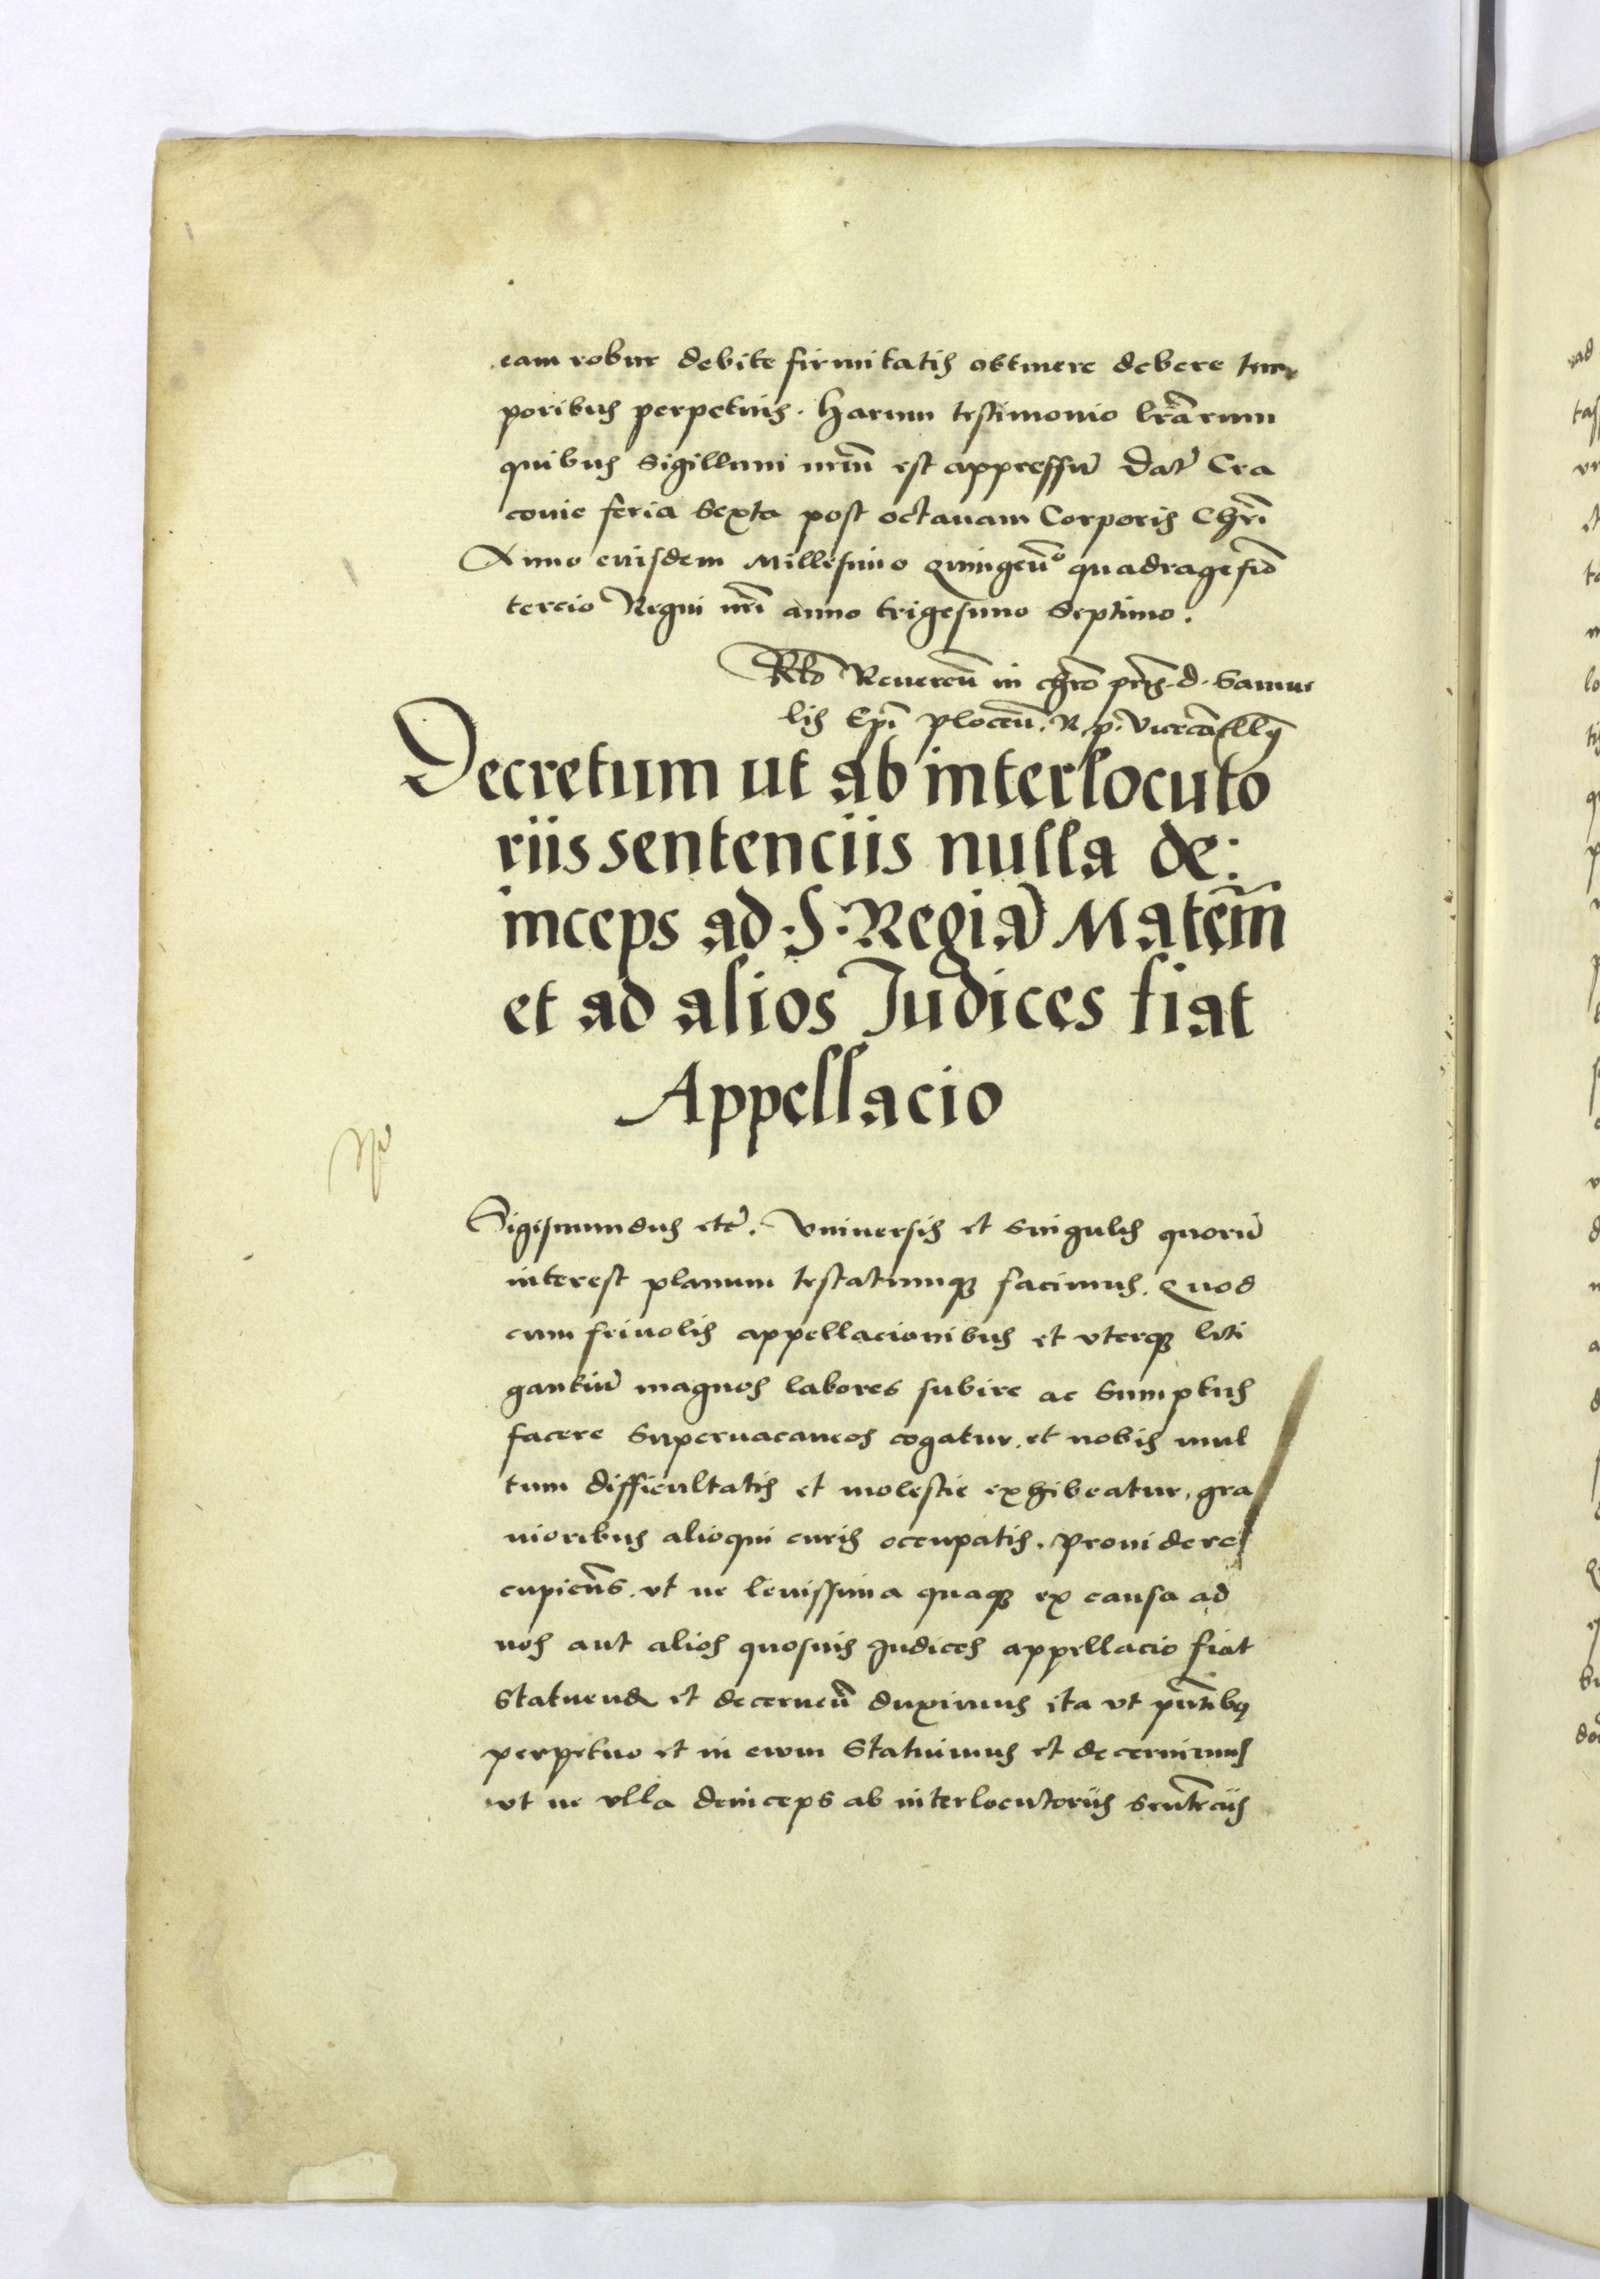 eam robur debite firmitatis obtinere debere tem
poribus perpetuis. Harum testimonio lr̃arum
quibus Sigillum nr̃m est appressũ Dat̃ Cra
covie feria Sexta post octavam Corporis Chrĩ
Anno eiusdem Millesimo Quingeñº quadragesiõ
tercio Regni nrĩ anno trigesimo Septimo.
Rlõ Revereñ in chrõ prĩs. d. Samue
lis Epĩ ploceñ. R. p. Vicecãllÿ
Decretum ut ab interlocuto
riis sentenciis nulla de:
inceps ad .S. Regiã Matẽm
et ad alios Judices fiat
Appellacio
Sigismundus etc̃. Vniversis et Singulis quorũ
interest planum testatumqꝫ facimus. Quod
cum frivolis appellacionibus et vterqꝫ liti
gantiũ magnos labores subire ac Sumptus
facere Supervacaneos cogatur. et nobis mul
tum difficultatis et molestie exhibeatur, gra
vioribus alioqui curis occupatis. Providere
cupieñs. vt ne levissima quaqꝫ ex causa ad
nos aut alios quosvis Judices appellacio fiat
Statuend et decerneñ duximus ita vt pñtibꝫ
perpetuo et in evum Statuimus et decernimus
vt ne vlla deinceps ab interlocutoriis Senteciis